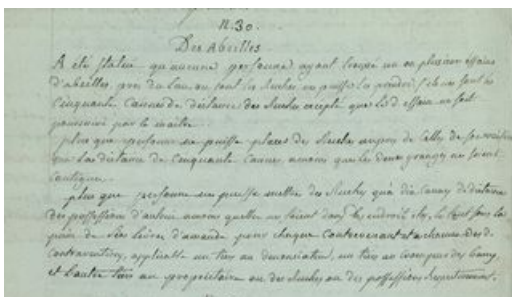 n. 30.
Des Abeilles
A été statué qu'aucune personne ayant trouvé un ou plusieurs essaims
d'abeilles, près du lieu ou sont les Ruches ne puisse les prendre s'ils ne sont à
Cinquante Cannes de distance des Ruches excepté que led. essaim ne fut
poursuivi par le maitre.
plus que personne ne puisse placer de Ruches auprès de Celles de son voisin
qu'à la distance de Cinquante Cannes, amoins que les deux granges ne soient
Contigues.
plus que personne ne puisse mettre des Ruches qu'à dix Cannes de distance
des possessions d'autrui amoins quelles ne soient dans les endroits clos, le tout sous la
peine de six livres d'amande pour chaque Contrevenant et a chacune des d.
Contraventions, applicable un tiers au denonciateur, un tiers au
et l'autre tiers au propriétaire ou des Ruches ou des possessions respectivement.